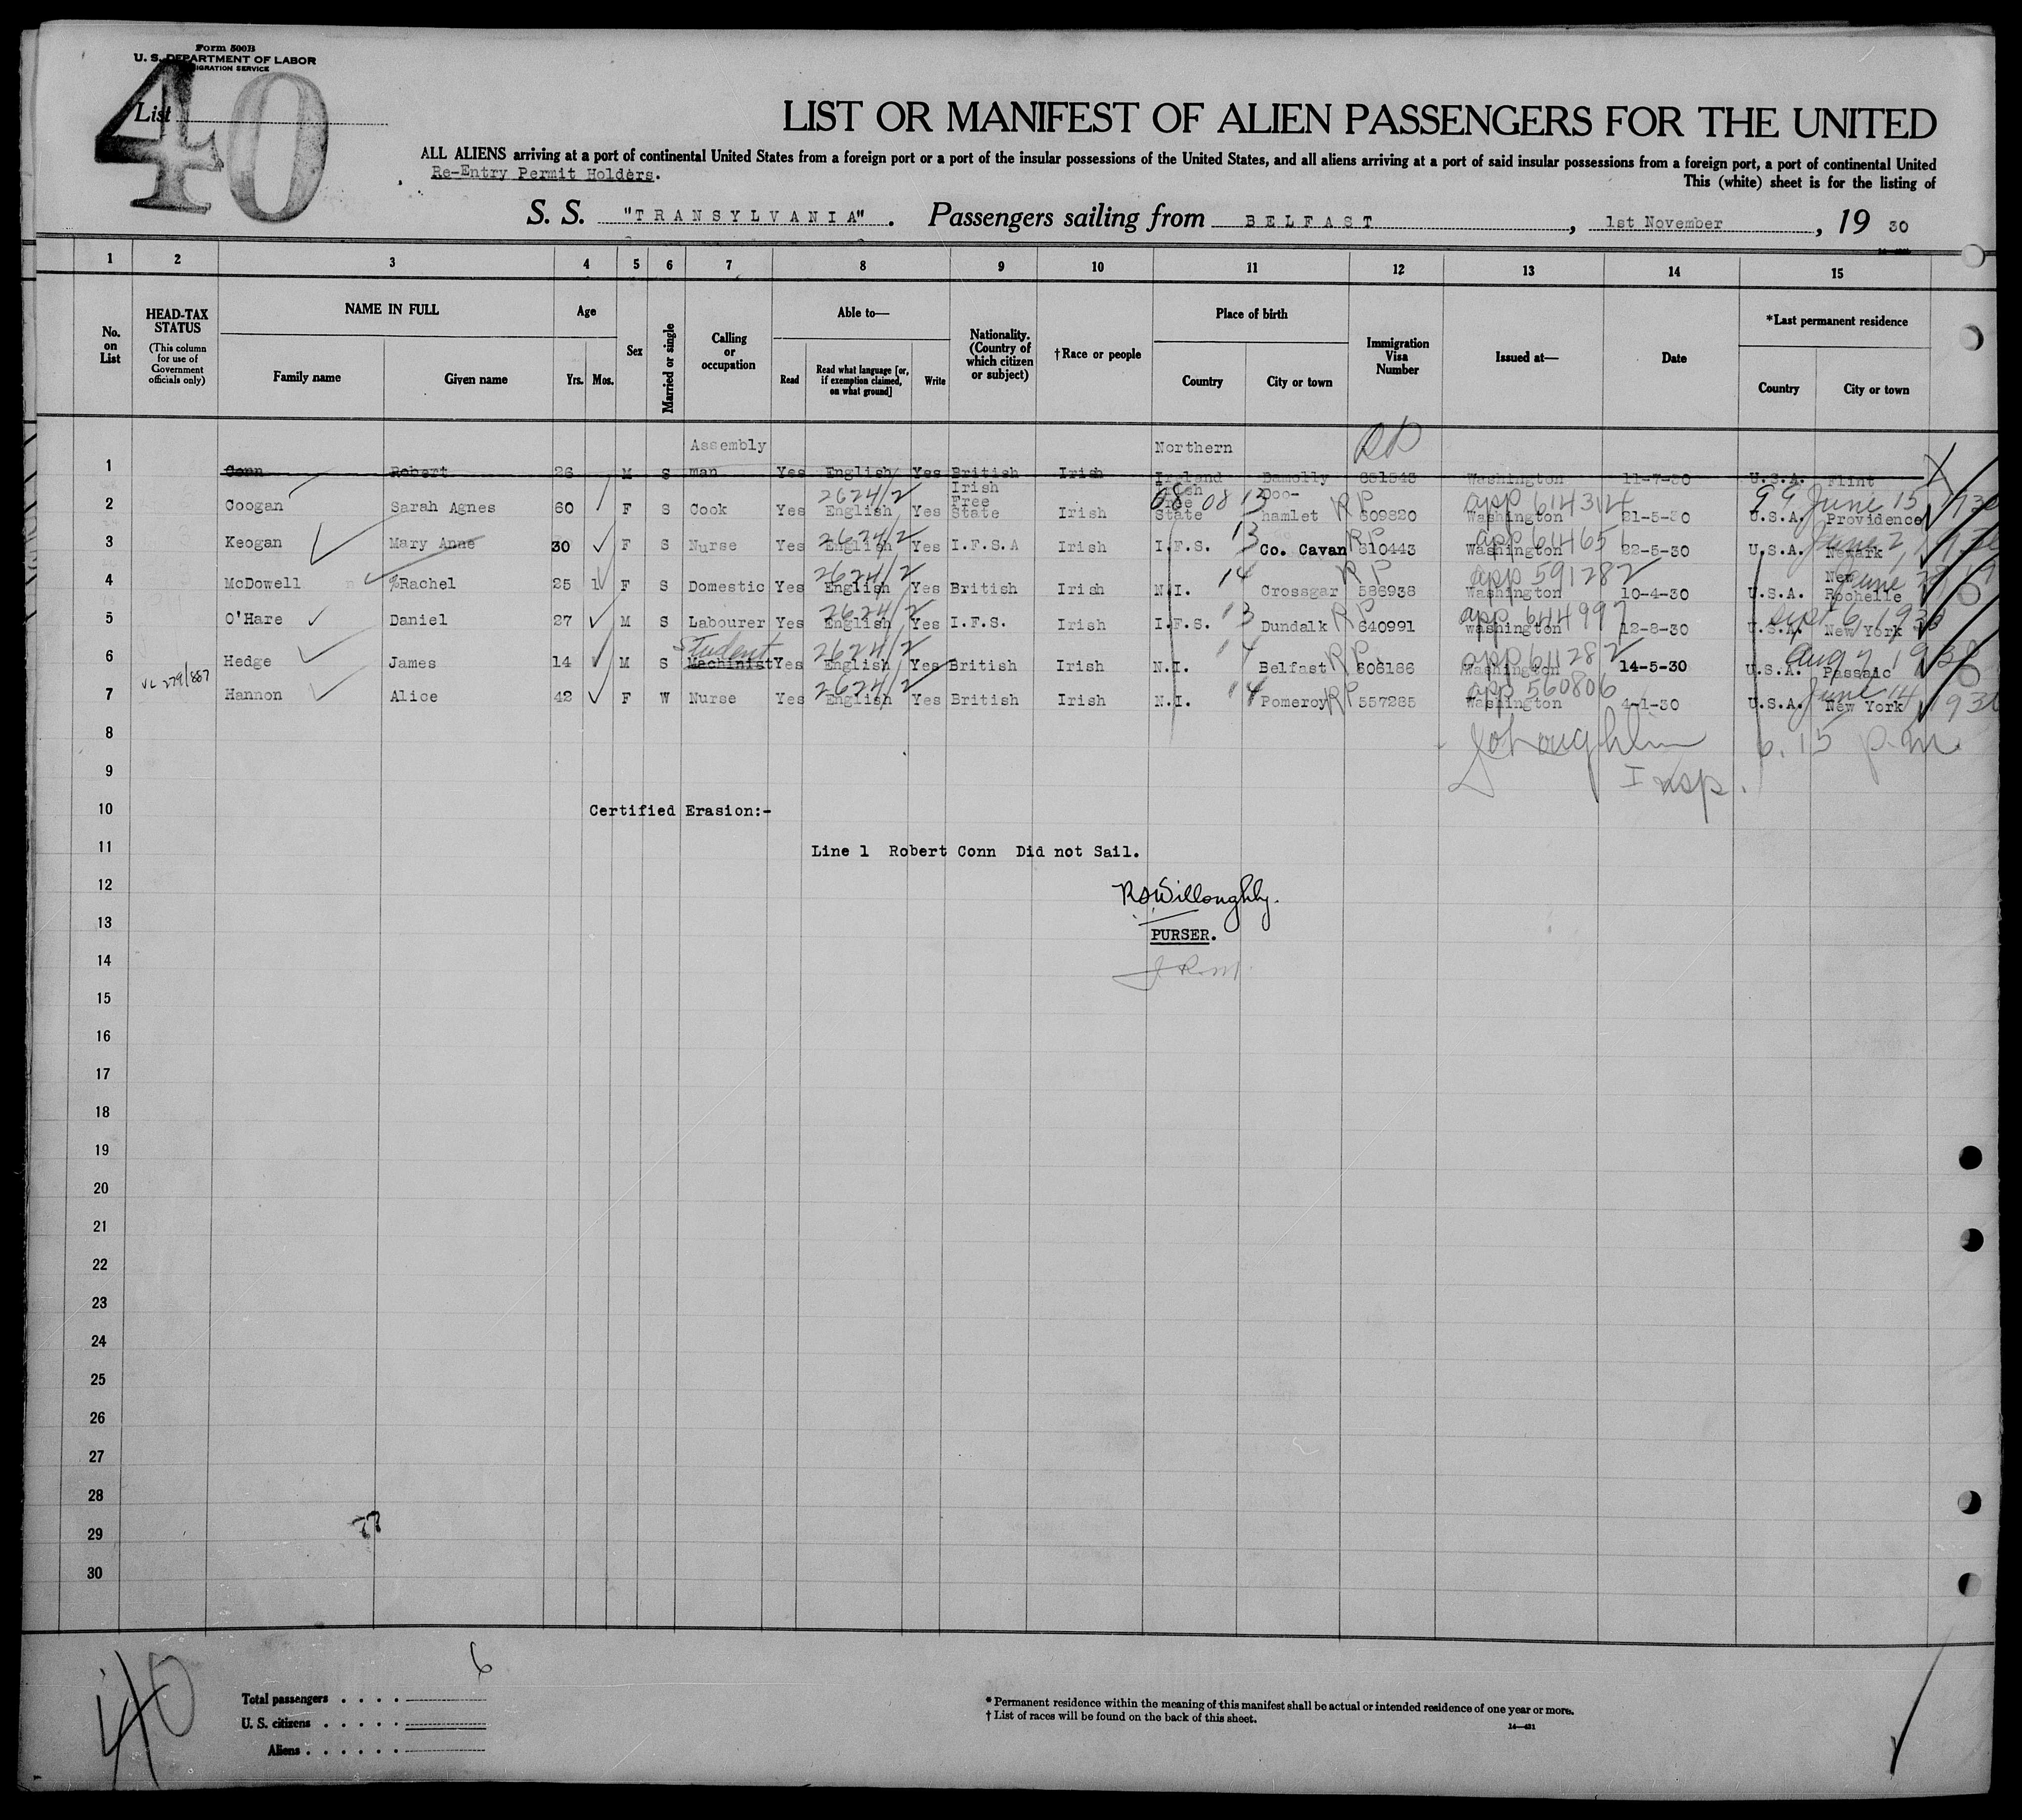 Form 500B
U. S. DEPARTMENT OF LABOR
IMMIGRATION SERVICE
40
List
LIST OR MANIFEST OF ALIEN PASSENGERS FOR THE UNITED
ALL ALIENS arriving at a port of continental United States from a foreign port or a port of the insular possessions of the United States, and all aliens arriving at a port of said insular possessions from a foreign port, a port of continental United
Re-Entry Permit Holders.
This (white) sheet is for the listing of
S. S. "TRANSYLVANIA". Passengers sailing from BELFAST, 1st November, 19 30
1 2 3 4 5 6 7 8 9 10 11 12 13 14 15
No. on List
HEAD-TAX STATUS
(This column for use of Government officials only)
NAME IN FULL
Family name
Given name
Age
Yrs. Mos.
Sex
Married or single
Calling or occupation
Able to—
Read
Read what language [or, if exemption claimed, on what ground]
Write
Nationality. (Country of which citizen or subject)
†Race or people
Place of birth
Country
City or town
Immigration Visa Number
Issued at—
Date
*Last permanent residence
Country
City or town
1 Conn Robert 26 M S Assembly man Yes English Yes British Irish Northern Ireland Damolly 651543 Washington 11-7-30 U.S.A. Flint
2624/2 08 08 13 RP app 614314 99 June 15 1930
2 Coogan Sarah Agnes 60 F S Cook Yes English Yes Irish Free State Irish Irish Free State Doo-hamlet 609820 Washington 21-5-30 U.S.A. Providence
2624/2 13 RP app 614651 June 2, 1930
3 Keogan Mary Anne 30 F S Nurse Yes English Yes I.F.S.A Irish I.F.S. Co. Cavan 610443 Washington 22-5-30 U.S.A. Newark
2624/2 14 RP app 591282 June
4 McDowell Rachel 25 1 F S Domestic Yes English Yes British Irish N.I. Crossgar 586938 Washington 10-4-30 U.S.A. New Rochelle
2624/2 13 RP app 644997 Sept 6, 1930
5 O'Hare Daniel 27 M S Labourer Yes English Yes I.F.S. Irish I.F.S. Dundalk 640991 Washington 12-8-30 U.S.A. New York
Student 2624/2 14 RP app 611282 Aug 7 1930
6 Hedge James 14 M S Machinist Yes English Yes British Irish N.I. Belfast 606166 Washington 14-5-30 U.S.A. Passaic
VL 279/887 2624/2 14 RP app 560806 June 14 1930
7 Hannon Alice 42 F W Nurse Yes English Yes British Irish N.I. Pomeroy 557285 Washington 4-1-30 U.S.A. New York
8 6.15 p.m.
9 Insp.
10 Certified Erasion:-
11 Line 1 Robert Conn Did not Sail.
12 Willoughby.
13 PURSER.
14
15
16
17
18
19
20
21
22
23
24
25
26
27
28
29
30
40
6
Total passengers
U. S. citizens
Aliens
* Permanent residence within the meaning of this manifest shall be actual or intended residence of one year or more.
† List of races will be found on the back of this sheet.
14—421